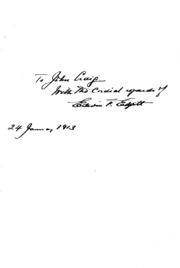 To John Craig
With the cordial regards of
Edwin F. Edgett
24 January 1913